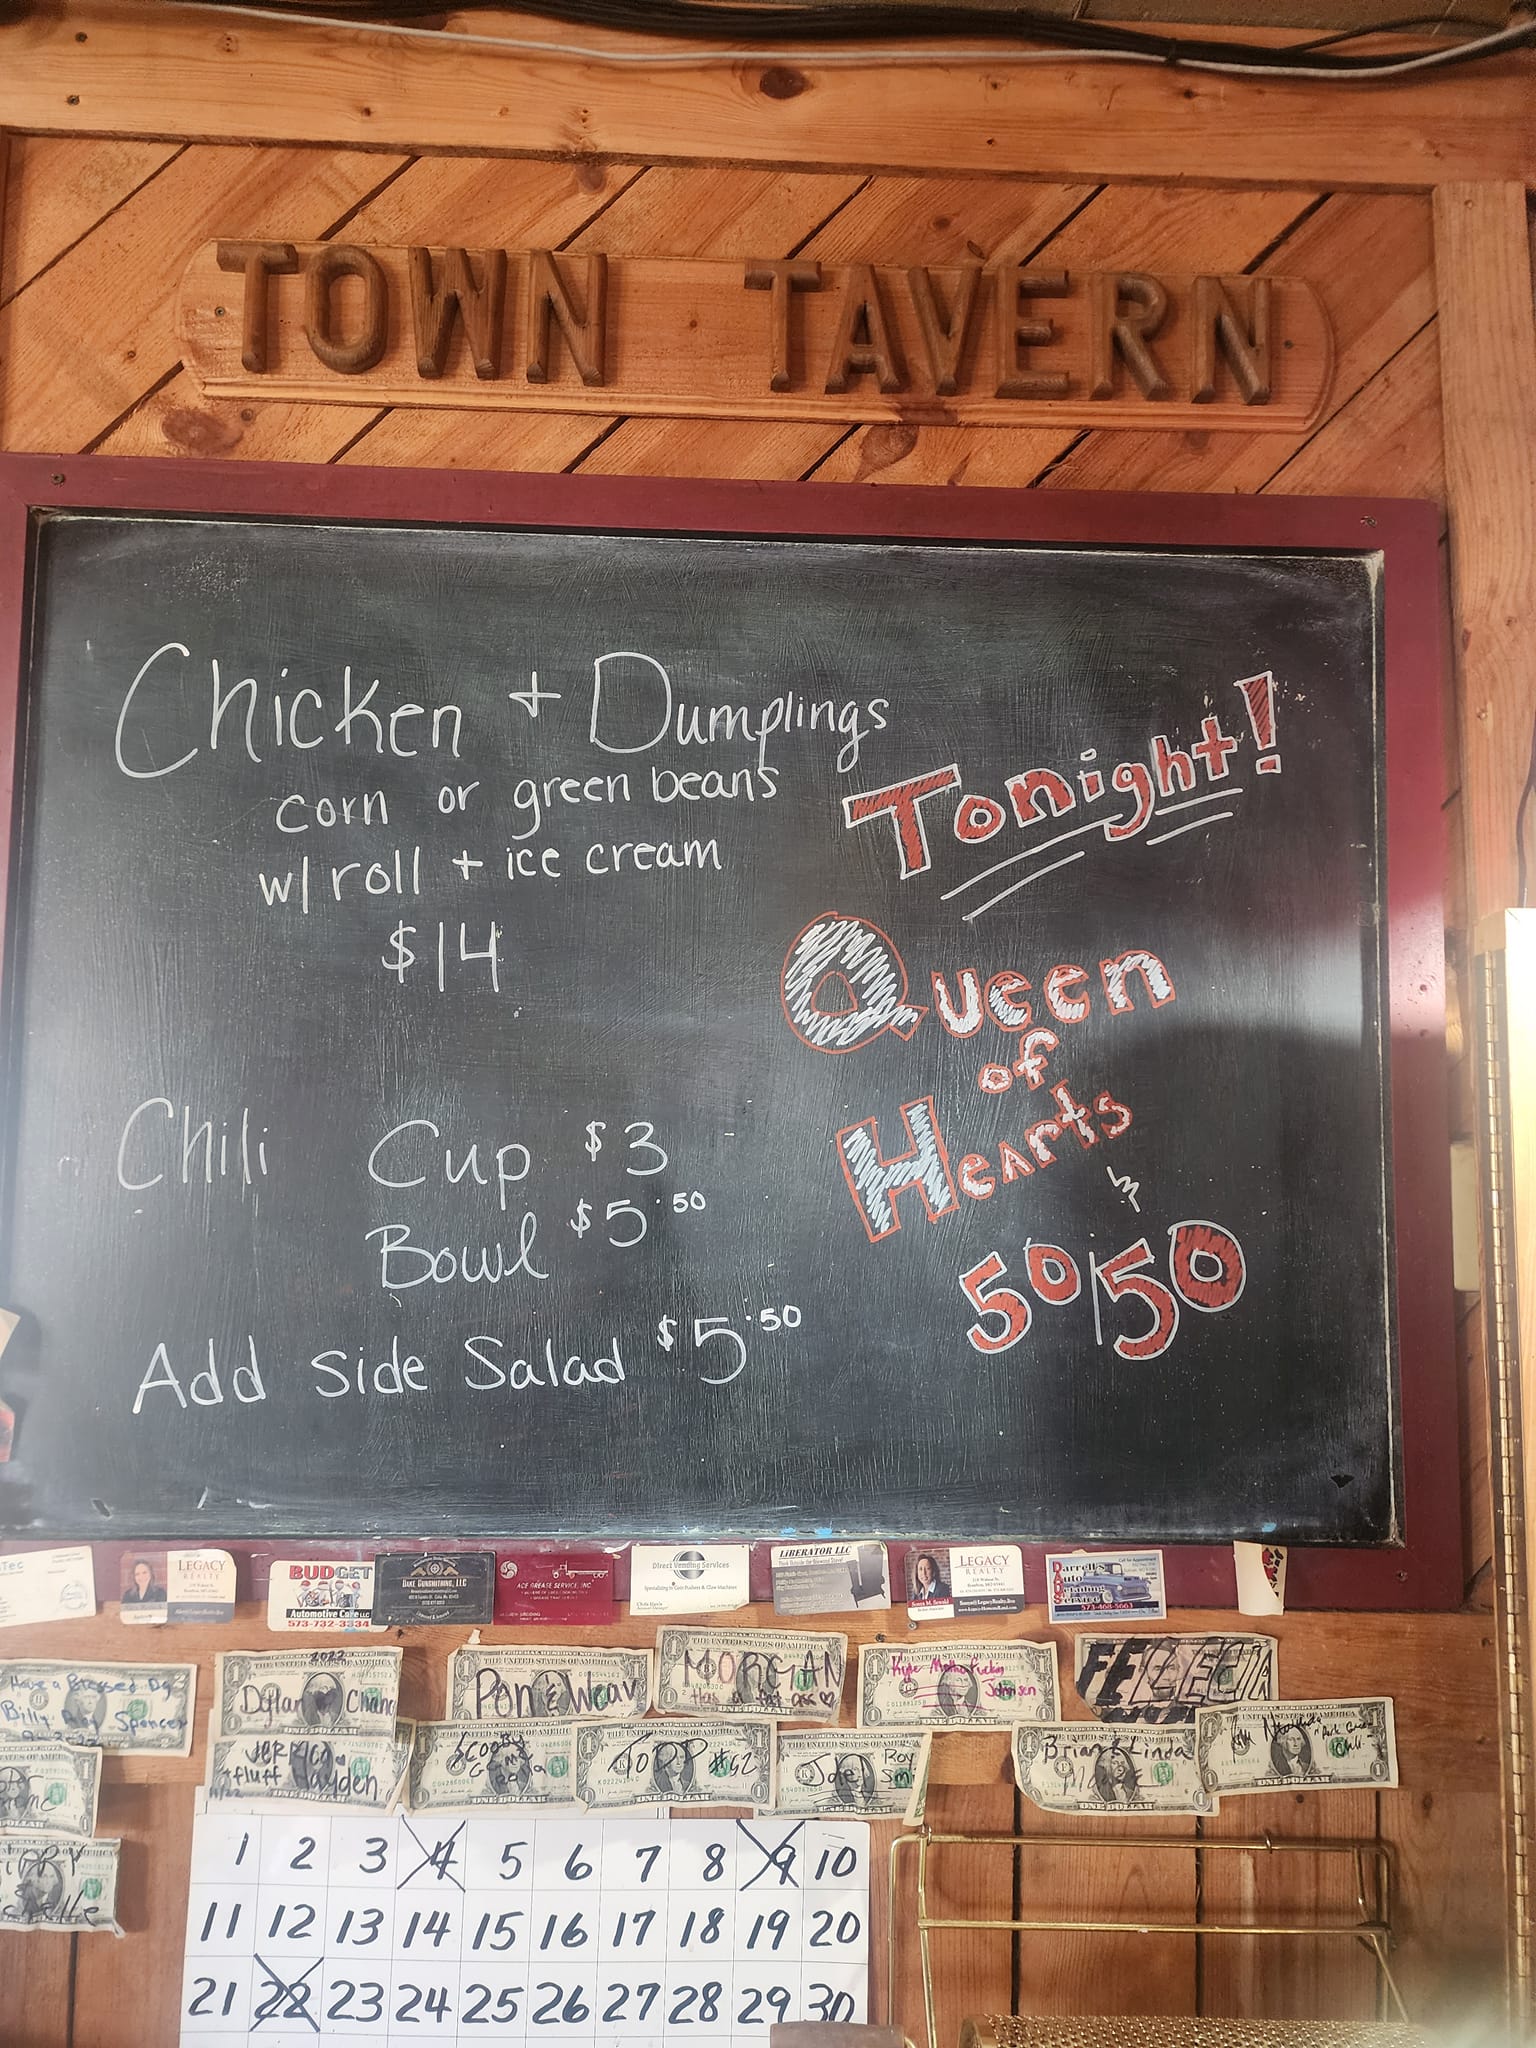 TOWN TAVERN
Chicken + Dumplings
corn or green beans
w/ roll + ice cream
$14
Chili Cup $3
Bowl $5.50
Add side Salad $5.50
Tonight!
Queen
of
Hearts
&
50/50
LEGACY
REALTY
BUDGET
Automotive Care LLC
573-732-3334
DAKE GUNSMITHING, LLC
ACE GREASE SERVICE, INC.
Direct Vending Services
Specializing in Coin Pushers & Claw Machines
LiBERATOR LLC
LEGACY
REALTY
Sonya M.
Darrell's
Auto
Detailing
Service
573-468-5663
Have a Blessed Day
Billy Spencer
2022
Dylan Chanc
Pon & Weav
MORGAN
Has a fat ass
Kyle Motha Fuckin
Johnson
JERRICA
+ fluff Hayden
Scooby
TODD #62
Joel Roy
Brian & Linda
THE UNITED STATES OF AMERICA
ONE DOLLAR
1 2 3 4 5 6 7 8 9 10
11 12 13 14 15 16 17 18 19 20
21 22 23 24 25 26 27 28 29 30